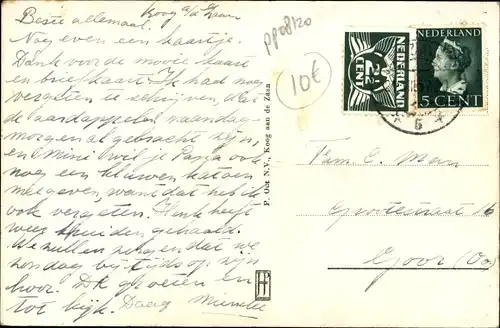 Koog a/d Zaan
Beste allemaal.
Nog even een kaartje.
Dank voor de mooie kaart
en briefkaart. Ik had nog
vergeten te schrijven, dat
de aardappels maandag-
morgen al gebracht zijn,
en Mini wil je Papa ook
nog een kluwen katoen
meegeven, want dat heb ik
ook vergeten. Henk heeft
weer kruiden gehaald.
We zullen zorgen dat we
zondag bijtijds op zijn
hoor. De groeten en
tot kijk. Daag
P. Out N.V., Koog aan de Zaan
pp08120
10€
NEDERLAND
2½
CENT
NEDERLAND
5 CENT
Fam. C.
Grotestraat 16
Goor (Ov.)